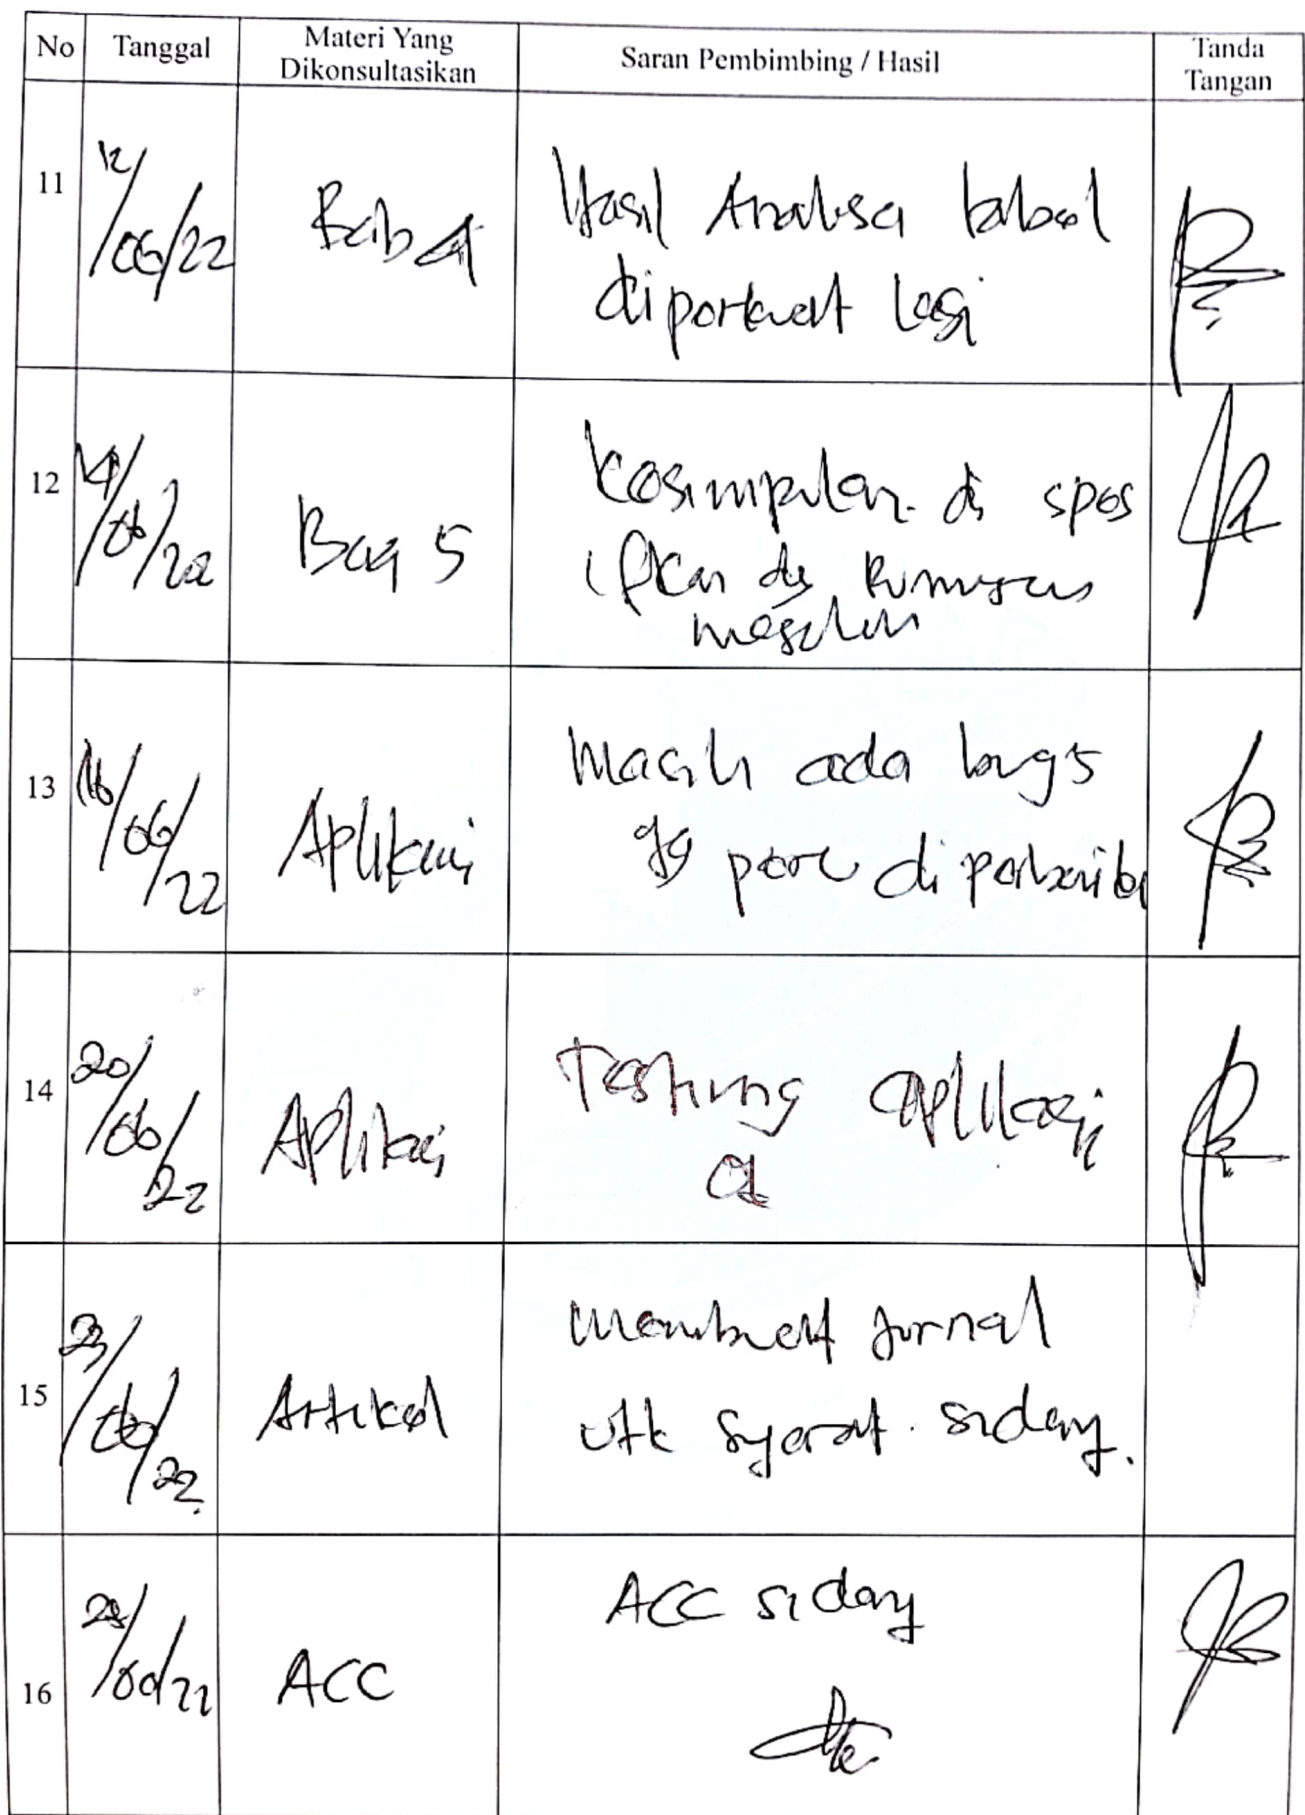 No Tanggal Materi Yang Dikonsultasikan Saran Pembimbing / Hasil Tanda Tangan
11 12/06/22 Bab 4 Hasil Analisa babal
diperkuat lagi
12 14/06/22 Bag 5 Kesimpulan di spes
ifikan dg Rumusan
masalah
13 16/06/22 Aplikasi Masih ada bugs
yg perlu diperbaiki
14 20/06/22 Aplikasi Testing aplikasi
15 23/06/22 Artikel membuat jurnal
utk syarat sidang.
16 ACC ACC sidang